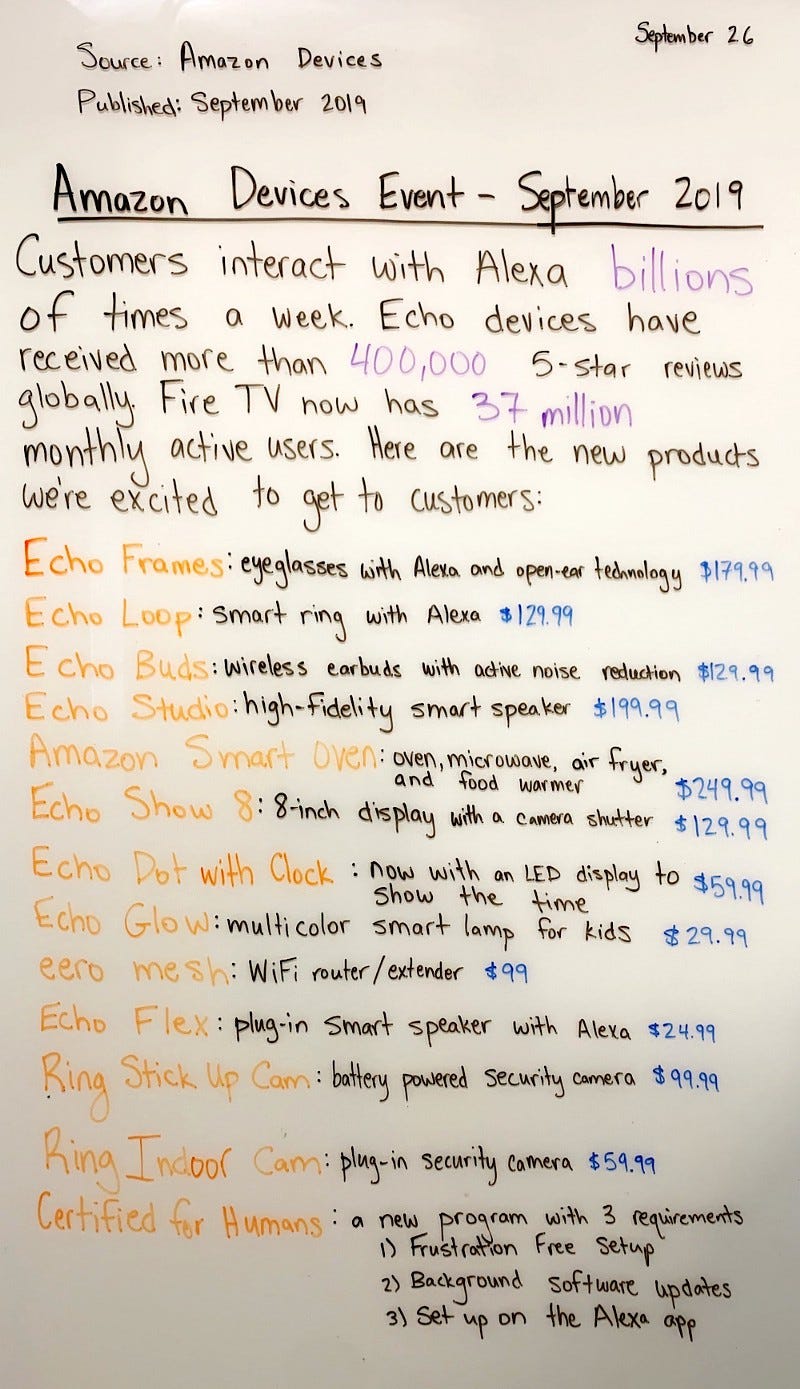 September 26
Source: Amazon Devices
Published: September 2019
Amazon Devices Event - September 2019
Customers interact with Alexa billions
of times a week. Echo devices have
received more than 400,000 5-star reviews
globally. Fire TV now has 37 million
monthly active users. Here are the new products
we're excited to get to customers:
Echo Frames: eyeglasses with Alexa and open-ear technology $179.99
Echo Loop: smart ring with Alexa $129.99
Echo Buds: wireless earbuds with active noise reduction $129.99
Echo Studio: high-fidelity smart speaker $199.99
Amazon Smart Oven: oven, microwave, air fryer,
and food warmer $249.99
Echo Show 8: 8-inch display with a camera shutter $129.99
Echo Dot with Clock: now with an LED display to $59.99
show the time
Echo Glow: multicolor smart lamp for kids $29.99
eero mesh: WiFi router/extender $99
Echo Flex: plug-in smart speaker with Alexa $24.99
Ring Stick Up Cam: battery powered security camera $99.99
Ring Indoor Cam: plug-in security camera $59.99
Certified for Humans: a new program with 3 requirements
1) Frustration Free Setup
2) Background software updates
3) Set up on the Alexa app